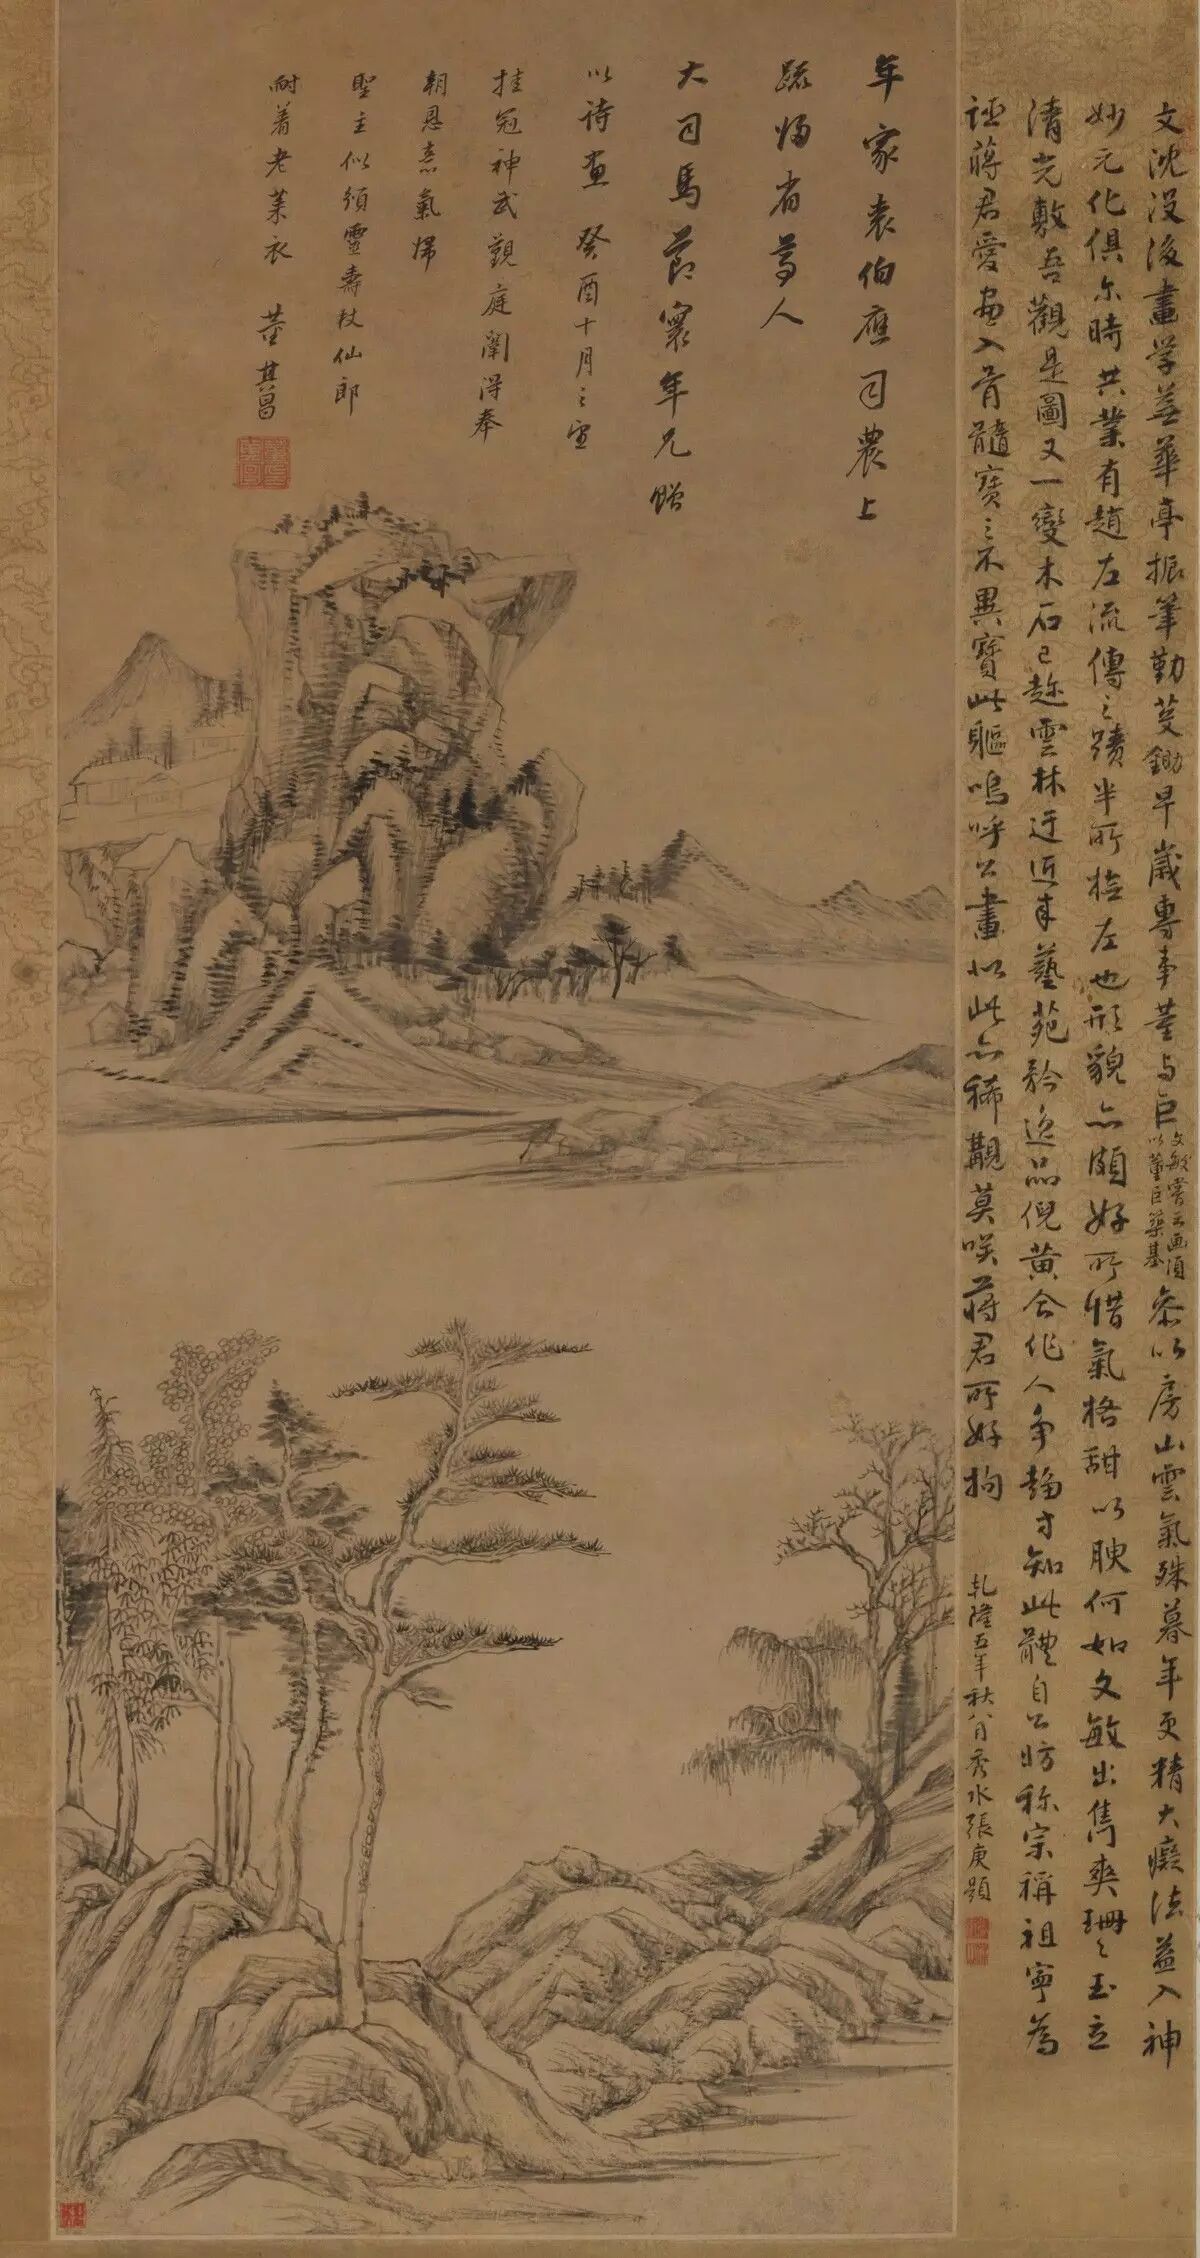 文沈没後畫学蕪華亭振筆勤芟鋤早歲專事董与巨
文敏嘗云画須
以董巨築基
参以房山雲氣殊暮年更精大癡法益入神
妙元化俱尔時共業有趙左流傳之蹟半所左也形貌亦頗好所惜氣格甜以腴何如文敏出雋爽珊々玉立
清光敷吾觀是圖又一變木石已趂雲林迂近来藝苑矜逸品倪黄合作人争趋才知此體自公昉称宗稱祖寧為
誣蔣君愛畫入骨髓寳之不異寳此軀嗚呼公畫似此亦稀覯莫咲蔣君所好拘
乾隆五年秋八月秀水張庚題
年家袁伯應司農上
疏歸省尊人
大司馬節寰年兄贈
以詩画 癸酉十月之望
挂冠神武覲庭闈得奉
朝恩氣歸
聖主似頒靈壽杖仙郎
耐着老莱衣 董其昌